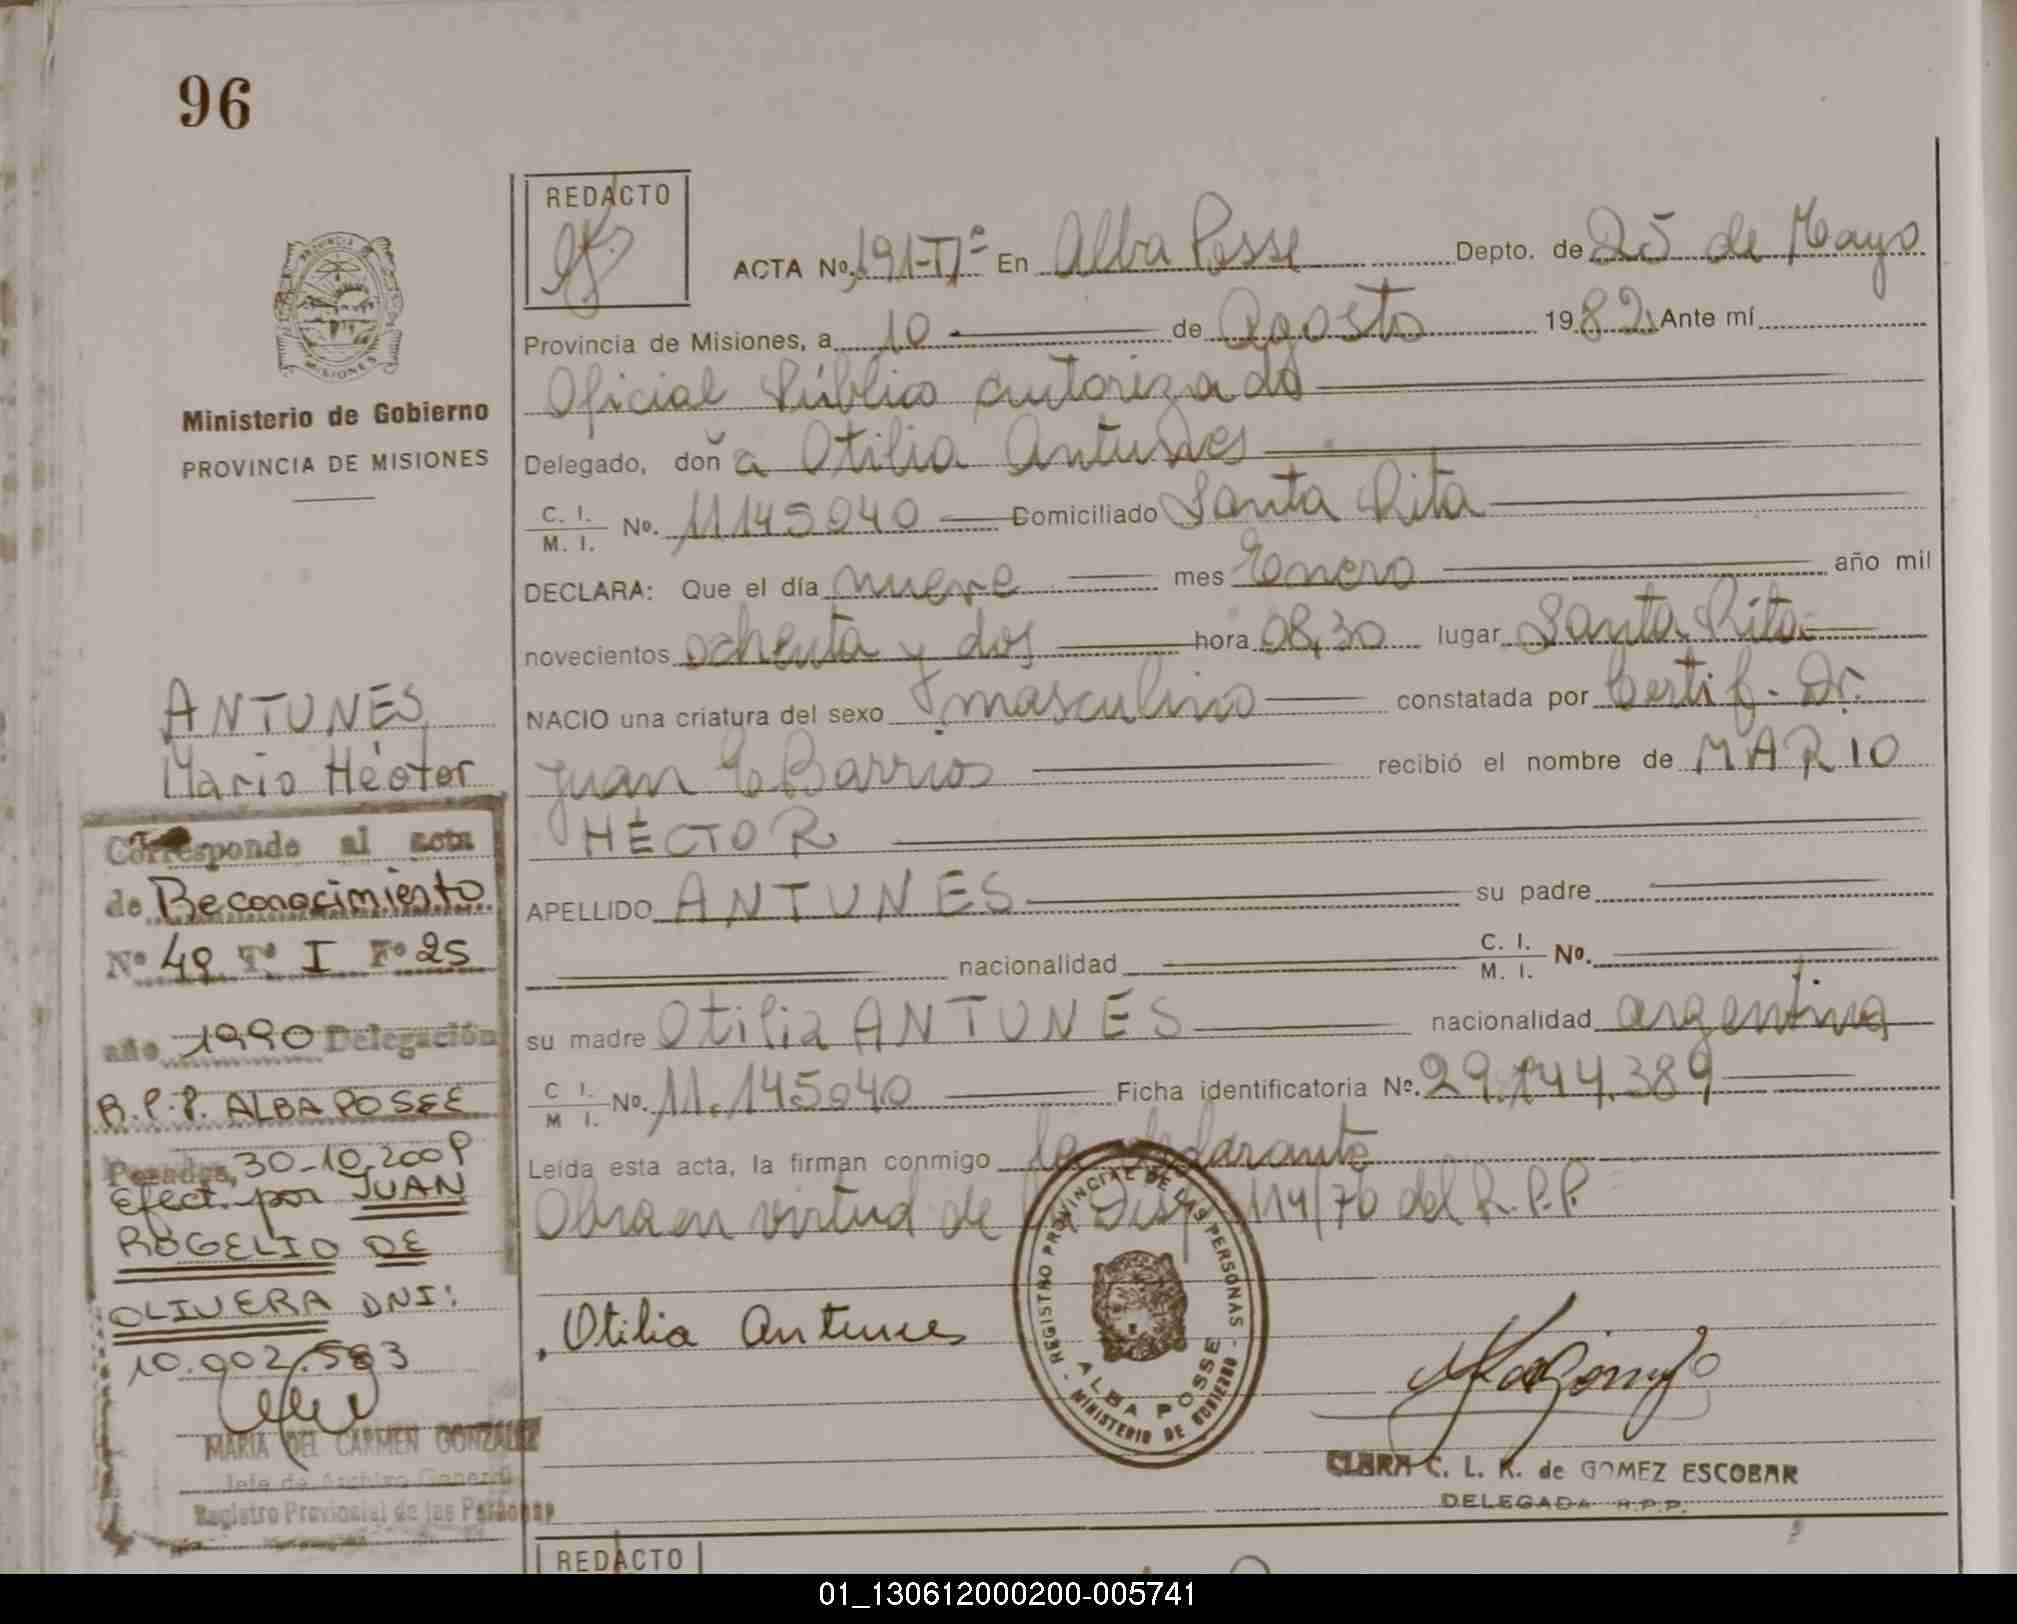 96
REDACTO
ACTA No. 191-Tº I En Alba Posse Depto. de 25 de Mayo
Provincia de Misiones, a 10 de Agosto 1982. Ante mí
PROVINCIA
MISIONES
Oficial Público autorizado
Ministerio de Gobierno
PROVINCIA DE MISIONES
Delegado, doña Otilia Antunes
C. I.
M. I. No. 11145040 Domiciliado Santa Rita
DECLARA: Que el día nueve mes Enero año mil
novecientos ochenta y dos hora 08,30 lugar Santa Rita
NACIO una criatura del sexo masculino constatada por Certif. Dr.
Juan E Barrios recibió el nombre de MARIO
HÉCTOR
APELLIDO ANTUNES su padre
nacionalidad C. I.
M. I. No.
su madre Otilia ANTUNES nacionalidad argentina
C I.
M I. No. 11.145040 Ficha identificatoria Nº. 29.144.389
Leída esta acta, la firman conmigo la declarante
Obra en virtud de la Disp. 114/76 del R.P.P.
Otilia Antunes
REGISTRO PROVINCIAL DE LAS PERSONAS
ALBA POSSE
MINISTERIO DE GOBIERNO
CLARA C. L. K. de GOMEZ ESCOBAR
DELEGADA R.P.P.
ANTUNES
Mario Héctor
Corresponde al nota
de Reconocimiento
Nº 49 Tº I Fº 25
año 1990 Delegación
R.P.P. ALBA POSSE
Posadas, 30-10-2009
Efect. por JUAN
ROGELIO DE
OLIVERA DNI:
10.902.583
MARIA DEL CARMEN GONZALEZ
Jefe de Archivo General
Registro Provincial de las Personas
REDACTO
01_130612000200-005741